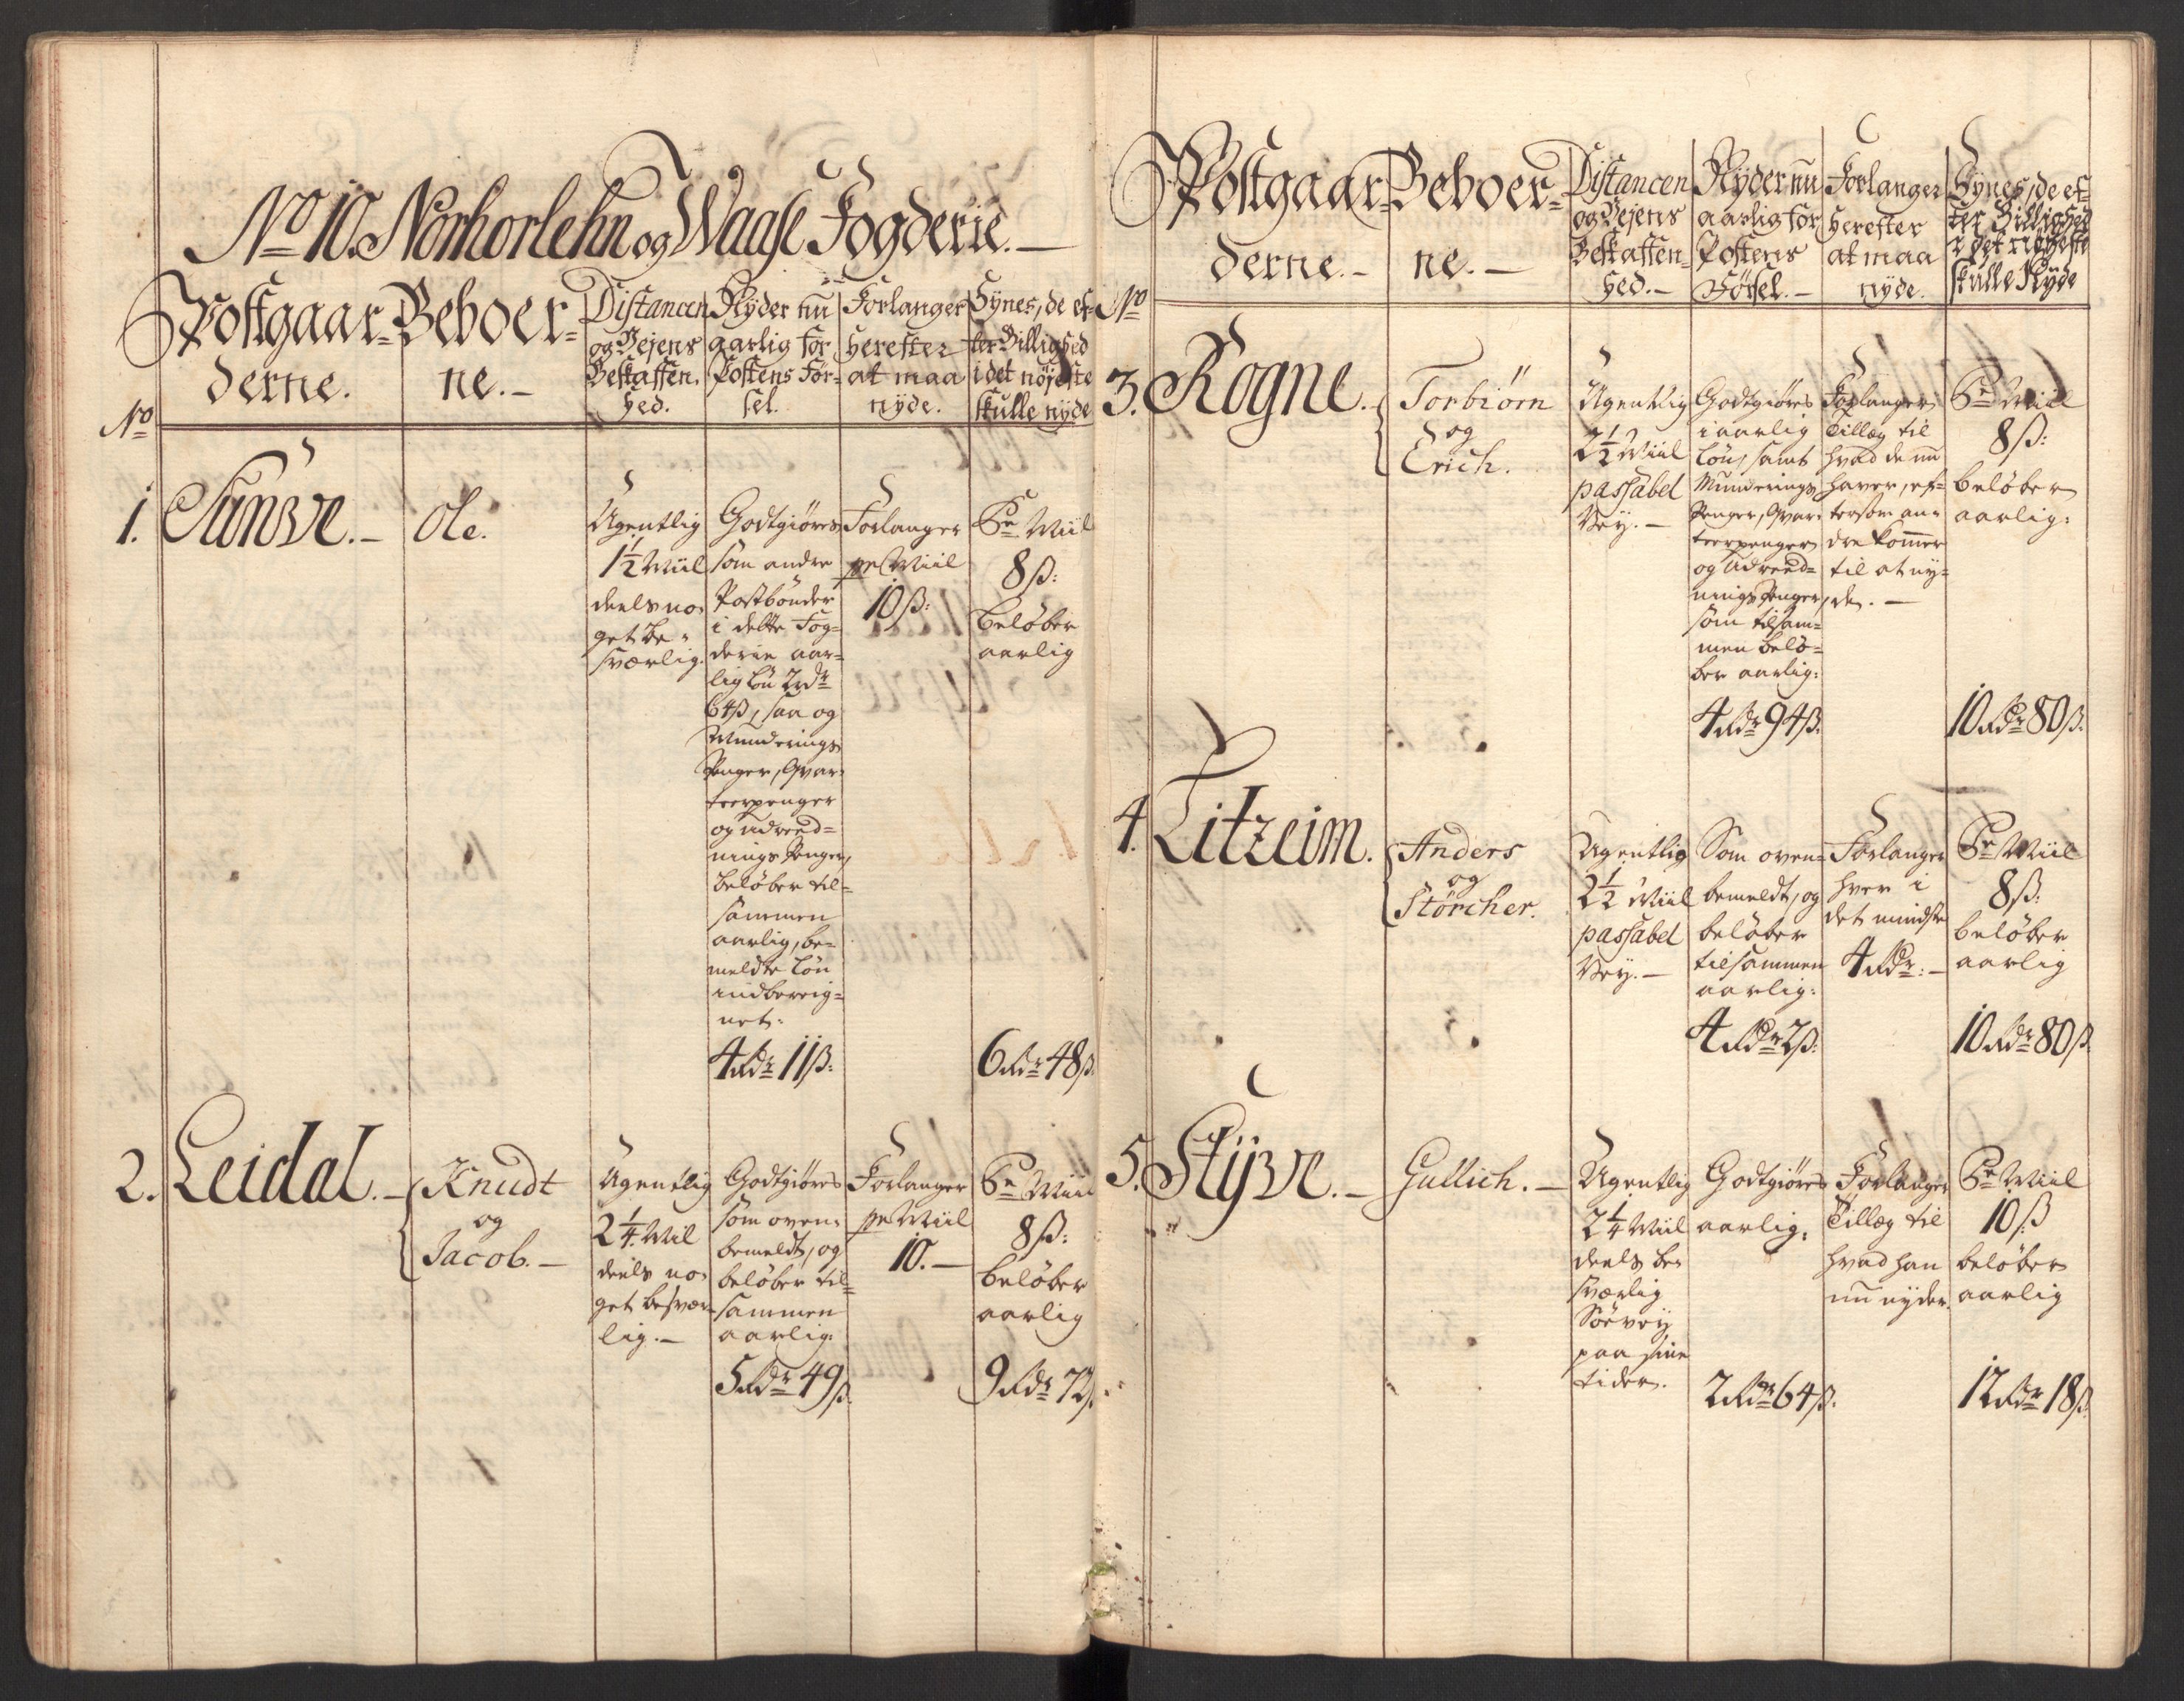 No 10. Norhorlehn og Waase Fogderie.
Postgaar=
derne.
Beboer=
ne.
Distancen
og Vejens
Beskaffen.
hed.
Nyder nu
aarlig for
Postens För=
sel.
Forlanger
herefter
at maa
nyde.
Synes, de ef=
ter Billighed
i det nöjeste
skulle nyde
No
1.
Sunve.
Ole.
Ugentlig
1 1/2 Miil
deels no=
get be=
sværlig.
Godtgiöres
som andre
Postbönder
i dette Fog=
derie aar=
lig Lön 2 rdr
64 ß, saa og
Munderings
Penger, Qvar=
teerpenger
og Udreed=
nings Penger,
belöber til=
sammen
aarlig, be=
meldte Lön
indbereig=
net:
4 Rdr 11 ß:
Forlanger
pr Miil
10 ß:
Pr Miil
8 ß:
belöber
aarlig
6 Rdr 48 ß.
2.
Leidal.
Knudt
og
Jacob.
Ugentlig
2 1/4 Mil
deels no=
get besvær=
lig.
Godtgiöres
som oven=
bemeldt, og
belöber til=
sammen
aarlig:
5 Rdr 49 ß.
Forlanger
pr Miil
10.
Pr Miil
8 ß:
belöber
aarlig
9 Rdr 72 ß.
Postgaar=
derne.
Beboer=
ne.
Distancen
og Vejens
Beskaffen=
hed.
Nyder nu
aarlig for
Postens
Försel.
Forlanger
herefter
at maa
nyde.
Synes, de ef=
ter Billighed
i det nöyeste
skulle Nyde
No
3.
Rogne.
Torbiörn
og
Erich.
Ugentlig
2 1/2 Miil
passabel
Vey.
Godtgiöres
i aarlig
Lön, samt
Munderings
Penger, Qvar=
teerpenger
og Udreed=
nings Penger,
som tilsam=
men belö=
ber aarlig:
4 Rdr 94 ß.
Forlanger
Tillæg til
hvad de nu
haver, ef=
tersom an=
dre kommer
til at ny=
de.
Pr Miil
8 ß:
belöber
aarlig:
10 Rdr 80 ß.
4.
Litzeim.
Anders
og
Störcher.
Ugentlig
2 1/2 Miil
passabel
Vey.
Som oven=
bemeldt, og
belöber
tilsammen
aarlig:
4 Rdr 2 ß:
Forlanger
hver i
det mindste
4 Rdr:
Pr Miil
8 ß:
belöber
aarlig
10 Rdr 80 ß.
5.
Styve.
Gullich.
Ugentlig
2 1/4 Miil
deels be=
sværlig
Söevey
paa sine
tider.
Godtgiöres
aarlig:
2 Rdr 64 ß.
Forlanger
Tillæg til
hvad han
nu nyder.
Pr Miil
10 ß
belöber
aarlig
12 Rdr 18 ß.